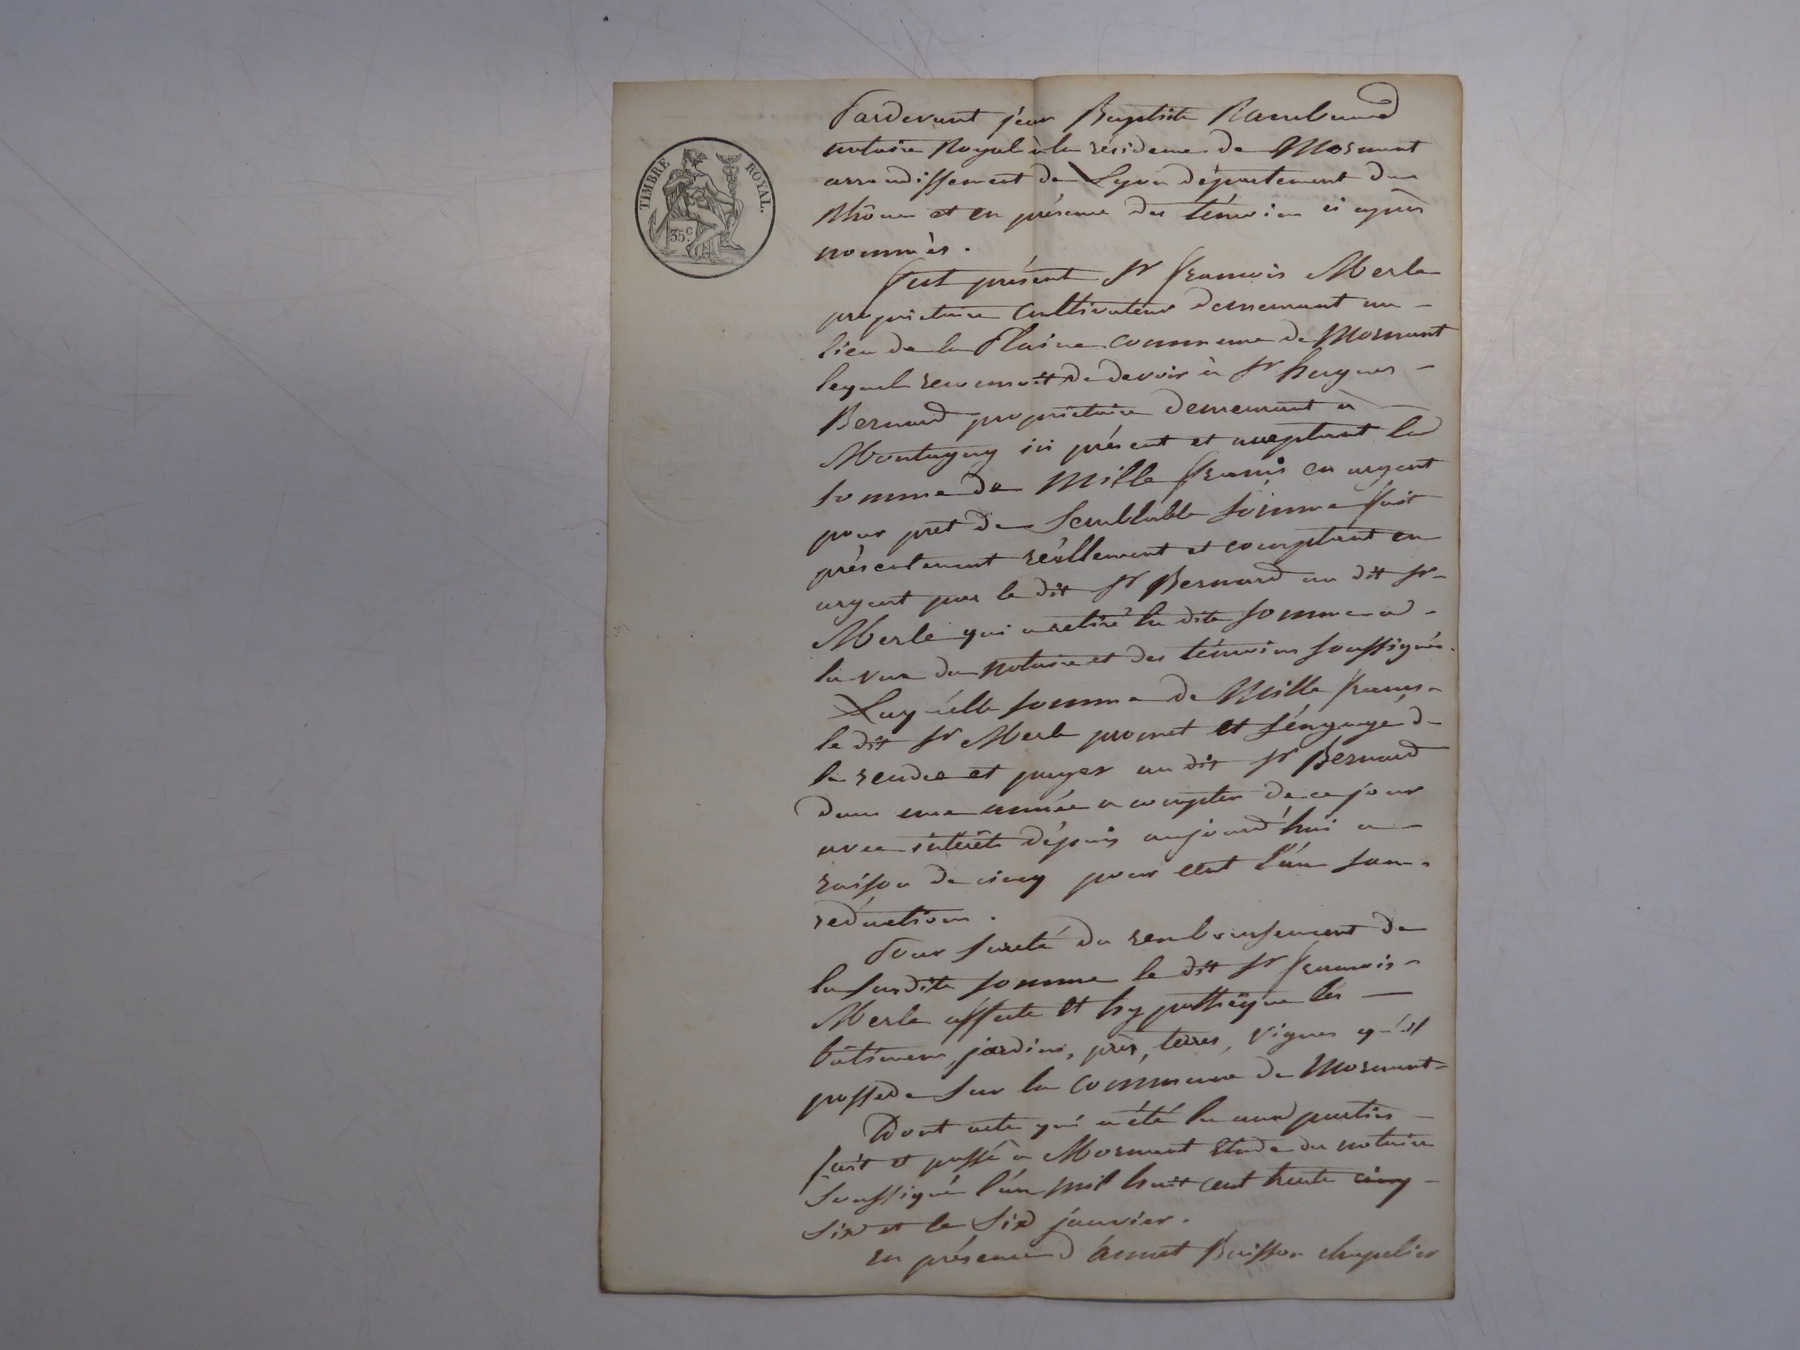 TIMBRE ROYAL.
35c
Pardevant jean Baptiste Rambaud
notaire Royal à la résidence de Mornant
arrondissement de Lyon département du
Rhône et en présence des témoins ci après
nommés.
Fut présent Sr françois Merle
propriétaire Cultivateur demeurant au
lieu de la Plaine commune de Mornant
lequel reconnoit de devoir à Sr hugues
Bernard propriétaire demeurant à
Montagny ici présent et acceptant la
somme de Mille francs en argent
pour pret de Semblable Somme fait
présentement réellement et comptant en
argent par le dit Sr Bernard au dit Sr
Merle qui a retiré la dite somme a
la vue du notaire et des témoins soussignés.
Laquelle somme de Mille francs
le dit Sr Merle promet et s'engage de
la rendre et payer au dit Sr Bernard
dans une année a compter de ce jour
avec intérêts dépuis aujourd'hui a
raison de cinq pour cent l'an sans
réduction.
Pour sureté du remboursement de
la susdite somme le dit Sr françois
Merle affecte et hypothèque les
bâtimens, jardins, près, terres, vignes qu'il
possede sur la commune de Mornant
Dont acte qui a été lu aux parties
fait et passé à Mornant étude du notaire
Soussigné l'an mil huit cent trente cinq
Six et le Six janvier.
En présence d'annet Buisson chapelier